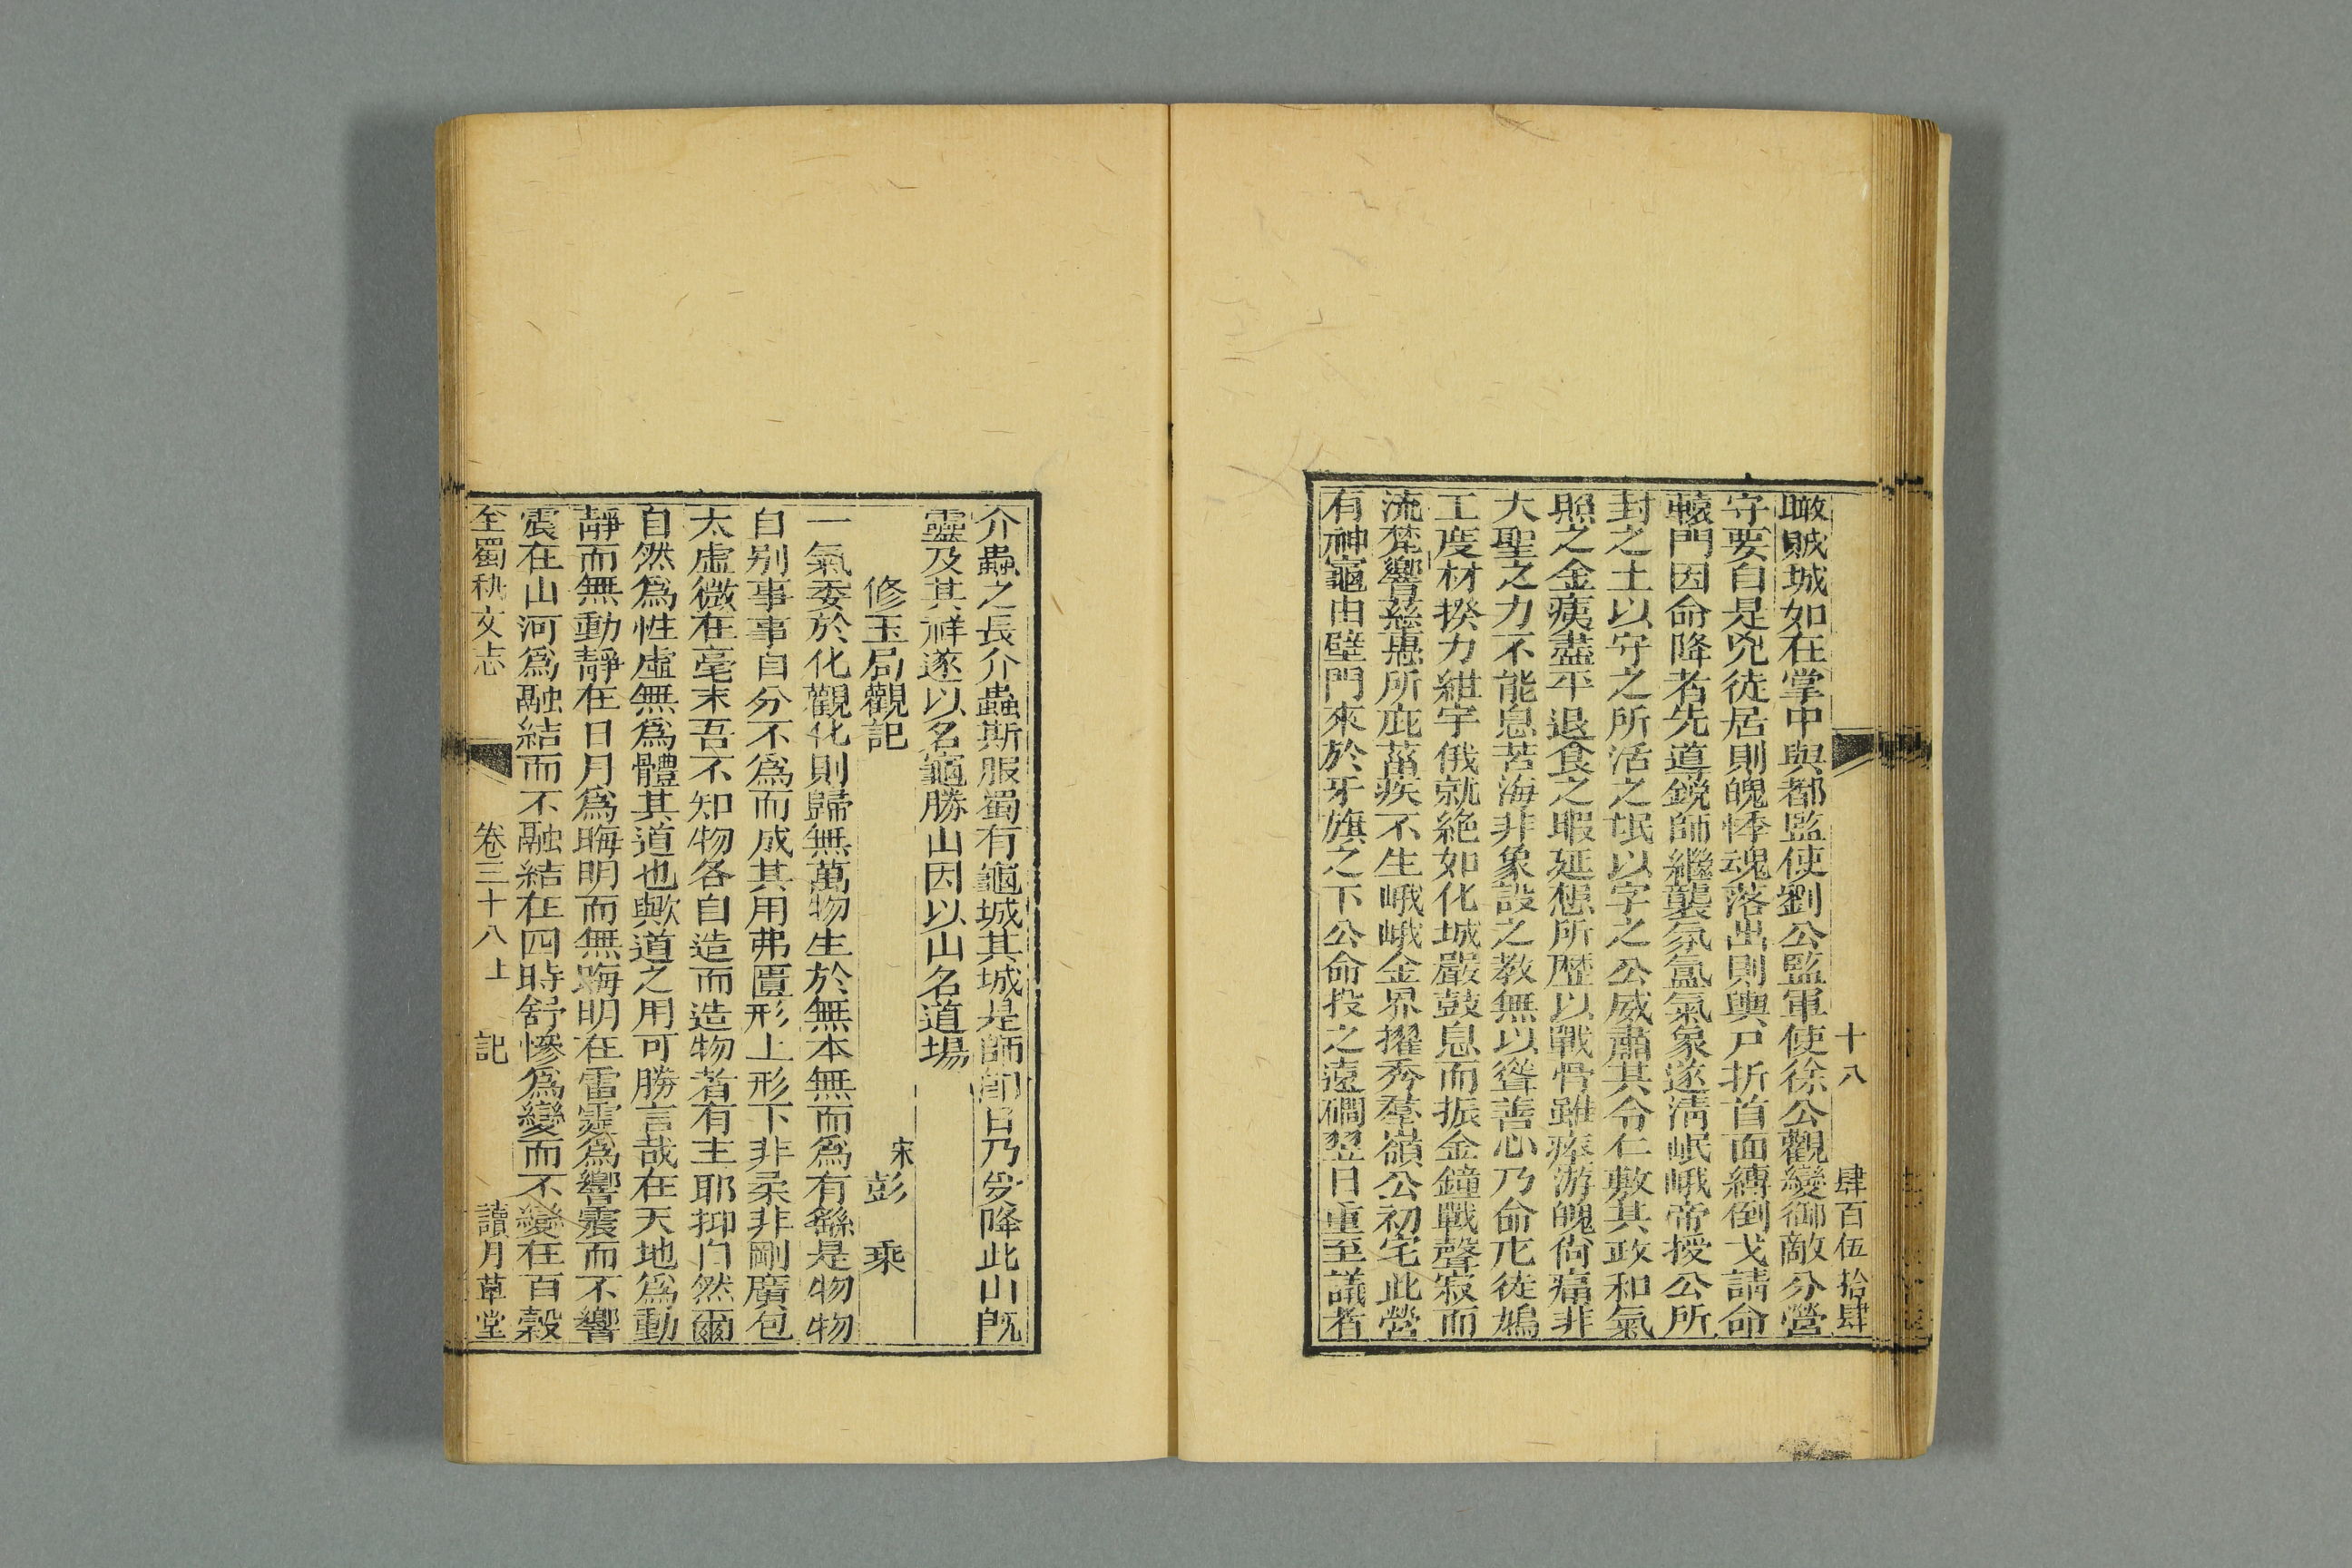 十八　肆百伍拾肆
瞰賊城如在掌中與都監使劉公監軍使徐公觀變御敵分營
守要自是兇徒居則魄悸魂落出則輿尸折首面縛倒戈請命
轅門因命降者先道銳師繼襲氛氳氣象遂淸岷峨帝授公所
封之土以守之所活之氓以字之公威肅其令仁敷其政和氣
照之金痍盡平退食之暇延想所歷以戰骨雖瘞游魄尙痛非
大聖之力不能息苦海非象設之教無以聳善心乃命庀徒鳩
工度材揆力紺宇俄就絶如化城嚴鼓息而振金鐘戰聲寂而
流梵響慈惠所庇菑疾不生峨峨金界擢秀羣嶺公初宅此營
有神龜由壁門來於牙旗之下公命投之遠磵翌日重至議者
介蟲之長介蟲斯服蜀有龜城其城是師卽日乃受降此山旣
靈及其祥遂以名龜勝山因以山名道場
修玉局觀記
宋彭　乘
一氣委於化觀化則歸無萬物生於無本無而爲有繇是物物
自别事事自分不爲而成其用弗匱形上形下非柔非剛廣包
太虛微在毫末吾不知物各自造而造物者有主耶抑自然爾
自然爲性虛無爲體其道也歟道之用可勝言哉在天地爲動
靜而無動靜在日月爲晦明而無晦明在雷霆爲響震而不響
震在山河爲融結而不融結在四時舒慘爲變而不變在百穀
全蜀秇文志　卷三十八上　記　讀月草堂